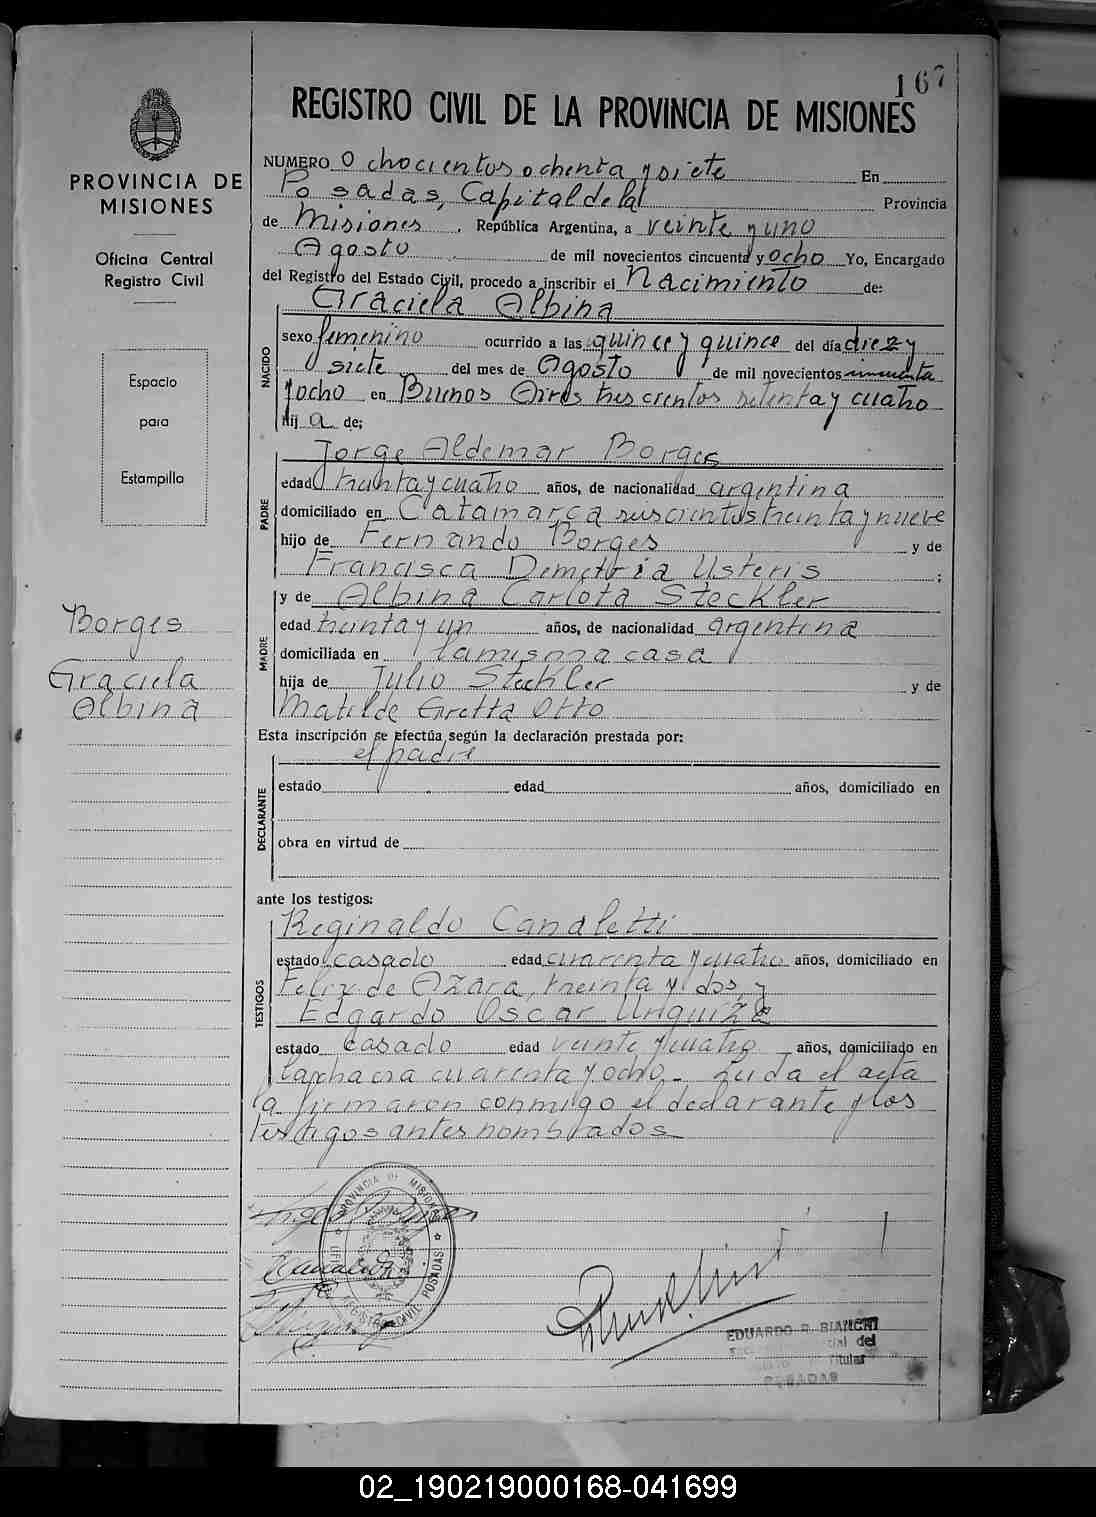 167
REGISTRO CIVIL DE LA PROVINCIA DE MISIONES
PROVINCIA DE
MISIONES
Oficina Central
Registro Civil
Espacio
para
Estampilla
Borges
Graciela
Albina
NUMERO Ochocientos ochenta y siete En
Posadas, Capital de la Provincia
de Misiones, República Argentina, a veinte y uno
Agosto de mil novecientos cincuenta y ocho Yo, Encargado
del Registro del Estado Civil, procedo a inscribir el Nacimiento de:
Graciela Albina
NACIDO
sexo femenino ocurrido a las quince y quince del día diez y
siete del mes de Agosto de mil novecientos cincuenta
y ocho en Buenos Aires trescientos setenta y cuatro
hij a de:
Jorge Aldemar Borges
PADRE
edad treinta y cuatro años, de nacionalidad argentina
domiciliado en Catamarca seiscientos treinta y nueve
hijo de Fernando Borges y de
Francisca Demetria Usteris ;
y de Albina Carlota Steckler
MADRE
edad treinta y un años, de nacionalidad argentina
domiciliada en la misma casa
hija de Julio Steckler y de
Matilde Gretta Otto
Esta inscripción se efectúa según la declaración prestada por:
el padre
DECLARANTE
estado edad años, domiciliado en
obra en virtud de
ante los testigos:
Reginaldo Canaletti
TESTIGOS
estado casado edad cuarenta y cuatro años, domiciliado en
Felix de Azara, treinta y dos y
Edgardo Oscar Urquiza
estado casado edad veinte y cuatro años, domiciliado en
la chacra cuarenta y ocho - Leida el acta
la firmaron conmigo el declarante y los
testigos antes nombrados
PROVINCIA DE MISIONES
REGISTRO CIVIL POSADAS
EDUARDO R. BIANCHI
del
Titular
POSADAS
02_190219000168-041699